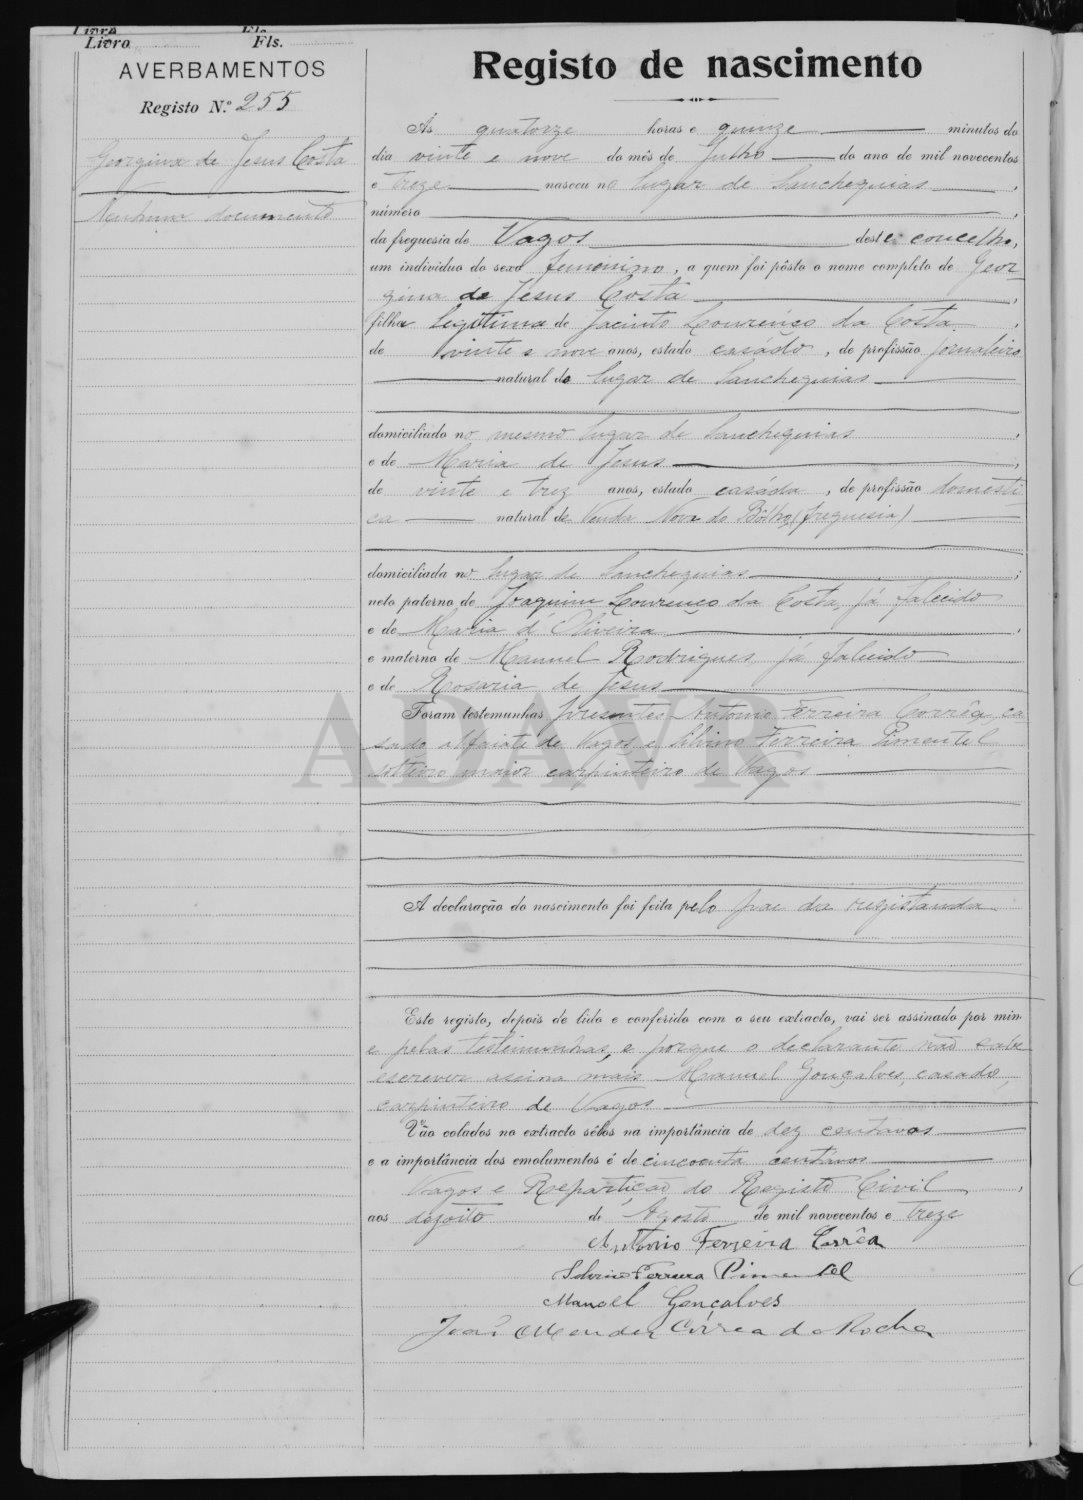 Livro Fls.
Livro Fls.
AVERBAMENTOS
Registo N.º 255
Georgina de Jesus Costa
Nenhum documento
Registo de nascimento
Ás quatorze horas e quinze minutos do
dia vinte e nove do mês de Julho do ano de mil novecentos
e treze nasceu no lugar de Sanchequias,
número ;
da freguesia de Vagos deste concelho,
um individuo do sexo femenino, a quem foi pôsto o nome completo de Geor-
gina de Jesus Costa ;
filha legitima de Jacinto Lourenço da Costa,
de vinte e nove anos, estado casádo, de profissão jornaleiro
natural do lugar de Sanchequias
domiciliado no mesmo lugar de Sanchequias,
e de Maria de Jesus,
de vinte e trez anos, estado casáda, de profissão domesti-
ca natural de Venda Nova do Bôlho, (freguesia)
domiciliada no lugar de Sanchequias ;
neto paterno de Joaquim Lourenço da Costa, já falecido
e de Maria d'Oliveira,
e materno de Manuel Rodrigues já falecido
e de Rosaria de Jesus
Foram testemunhas presentes Antonio Ferreira Corrêa, ca-
sado alfaiate de Vagos, e Silvino Ferreira Pimentel
solteiro maior carpinteiro de Vagos
ADAVR
A declaração do nascimento foi feita pelo pae da registanda
Este registo, depois de lido e conferido com o seu extracto, vai ser assinado por mim
e pelas testemunhas, e porque o declarante não sabe
escrever assina mais Manuel Gonçalves, casado,
carpinteiro de Vagos
Vão colados no extracto sêlos na importância de dez centavos
e a importância dos emolumentos é de cincoenta centávos
Vagos e Repartição do Registo Civil,
aos dezoito de Agosto de mil novecentos e treze
Antonio Ferreira Corrêa
Silvino Ferreira Pimentel
Manoel Gonçalves
João Mendes Corrêa da Rocha